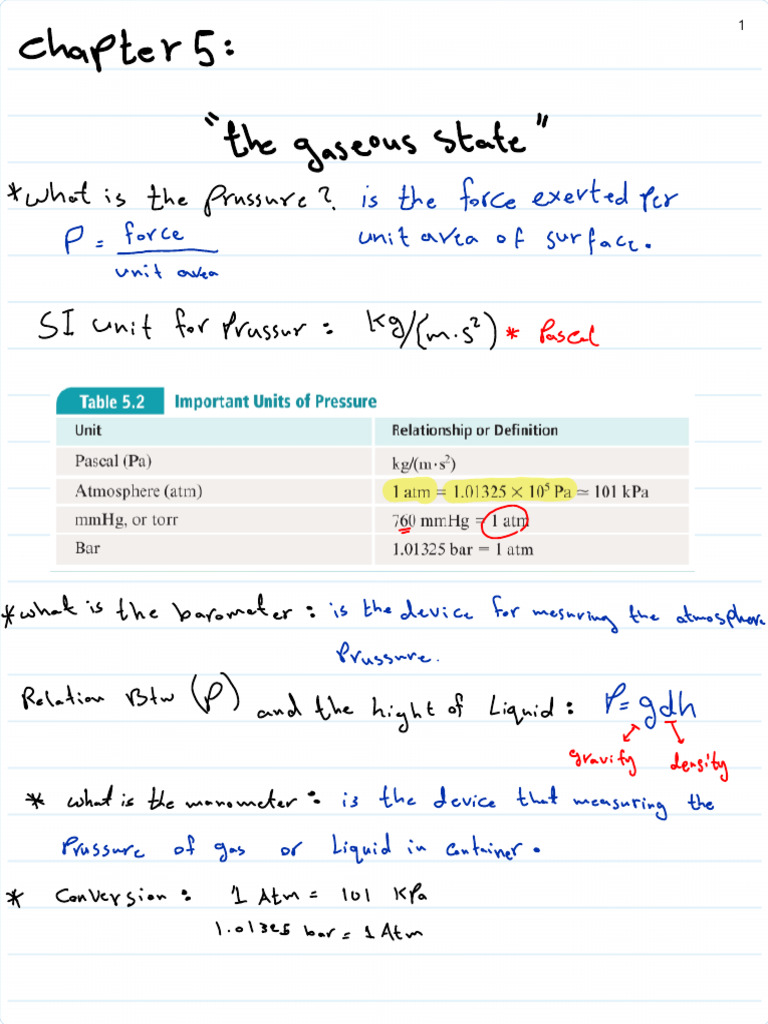 1
Chapter 5:
"the gaseous state"
*what is the Prussure? is the force exerted per
P = force / unit area unit area of surface.
SI unit for Prussur : kg/(m.s²) * Pascal
Table 5.2 Important Units of Pressure
Unit Relationship or Definition
Pascal (Pa) kg/(m·s²)
Atmosphere (atm) 1 atm = 1.01325 × 10⁵ Pa ≃ 101 kPa
mmHg, or torr 760 mmHg = 1 atm
Bar 1.01325 bar = 1 atm
*what is the barometer : is the device for mesuring the atmosphere
Prussure.
Relation Btw (P) and the hight of Liquid : P = gdh
gravify density
* what is the manometer : is the device that measuring the
Prussure of gas or Liquid in container.
* Conversion : 1 Atm = 101 KPa
1.01325 bar = 1 Atm